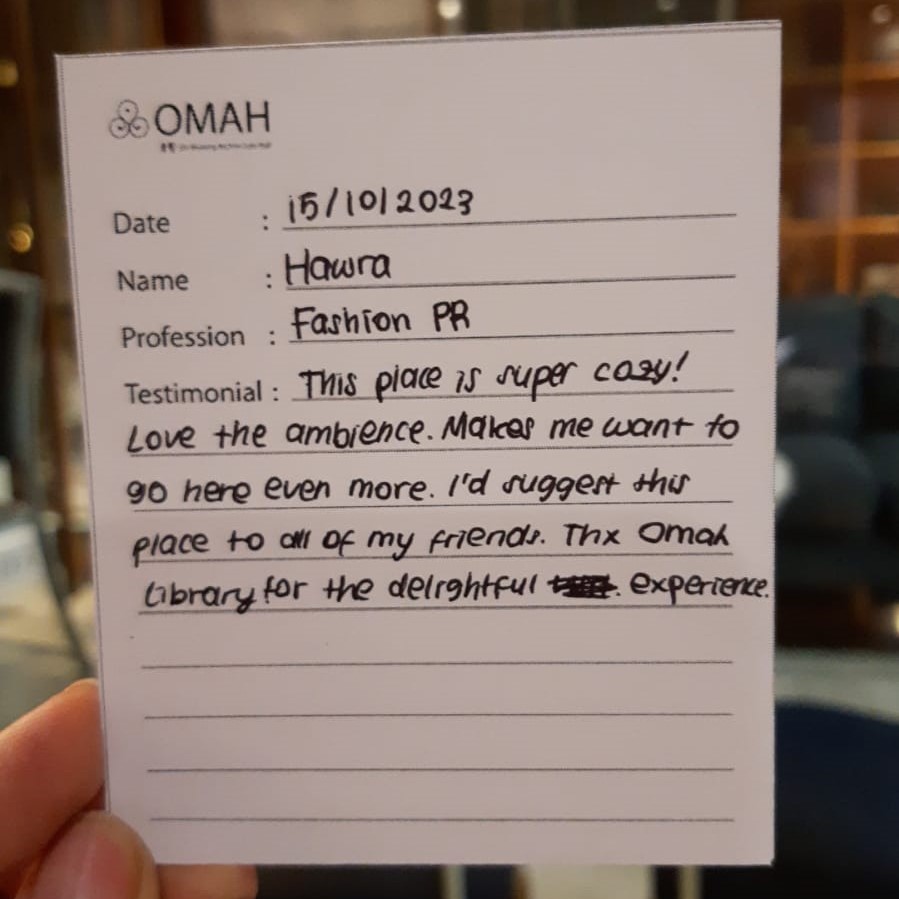 OMAH
Date : 15/10/2023
Name : Hawra
Profession : Fashion PR
Testimonial : This place is super cozy!
Love the ambience. Makes me want to
go here even more. I'd suggest this
place to all of my friends. Thx Omah
Library for the delightful . experience.